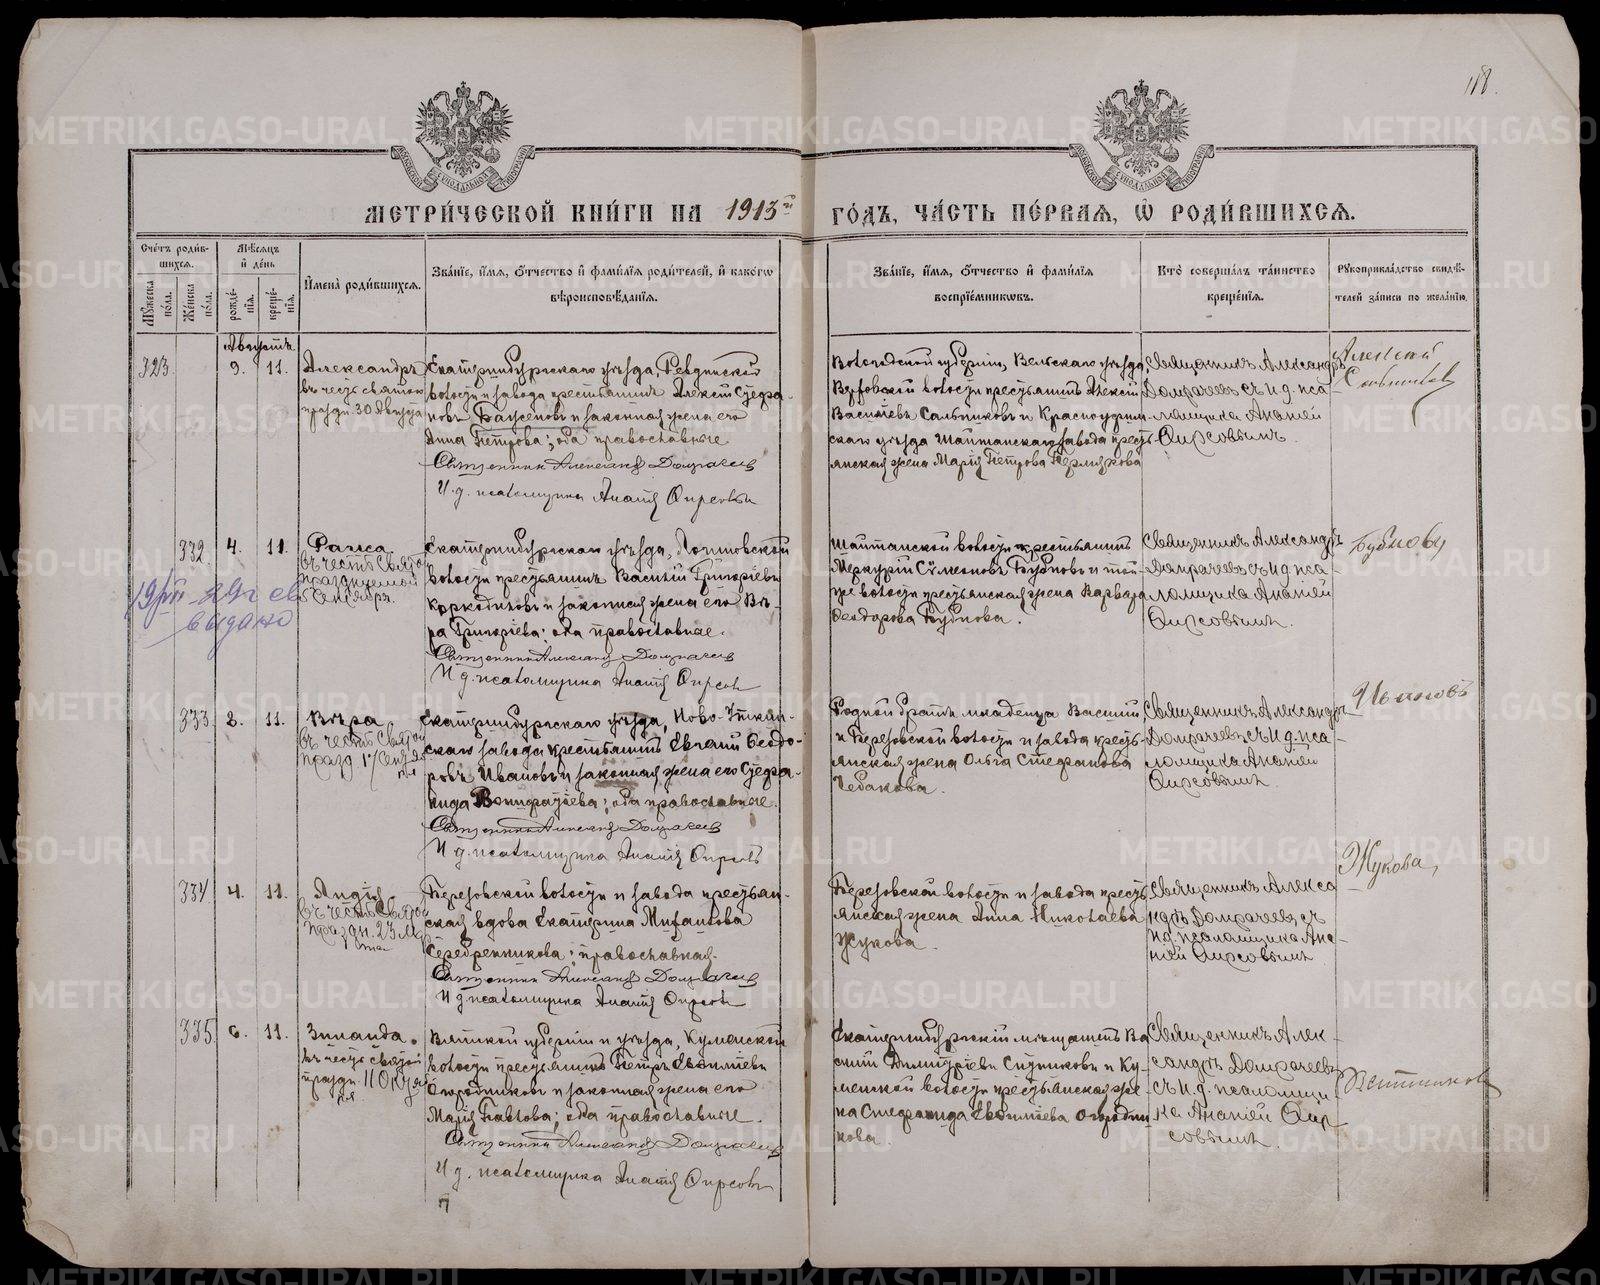 118.
МЕТРИ́ЧЕСКОЙ КНИ́ГИ НА 1913й ГО́ДЪ, ЧА́СТЬ ПЕ́РВАЯ, Ѡ҆ РОДИ́ВШИХСЯ.
Сче́тъ роди́вшихся.
Му́жеска по́ла.
Же́нска по́ла.
Мѣ́сяцъ и҆ де́нь
рожде́нїя.
креще́нїя.
И҆мена̀ роди́вшихся.
Зва́нїе, и҆́мя, ѻ҆́тчество и҆ фами́лїя роди́телей, и҆ како́гѡ
вѣроисповѣ́данїя.
Зва́нїе, и҆́мя, ѻ҆́тчество и҆ фами́лїя
воспрїе́мникѡвъ.
Кто̀ соверша́лъ та́инство
креще́нїя.
Рꙋкоприкла́дство свидѣ́-
телей за́писи по жела́нїю.
Августъ.
323. 9. 11.
Александръ
въ честь святого
праздн. 30 Августа
Екатеринбургскаго уѣзда, Ревдинской
волости и завода крестьянинъ Алексѣй
и законная жена его
Анна Петрова; оба православные
Священникъ Александръ Домрачевъ
И. д. псаломщика Ананій Фирсовъ
Вологодской губерніи, Вельскаго уѣзда,
волости крестьянинъ Алексѣй
Васильевъ Сальниковъ и Красноуфим-
скаго уѣзда Шайтанскаго завода кресть-
янская жена Марія Петрова
Священникъ Александръ
Домрачевъ съ и д. пса-
ломщика Ананіемъ
Фирсовымъ.
Алексѣй
Сальниковъ
332. 4. 11.
Раиса
въ честь святой
празднуемой
5 Сентября.
19/VII-29г св
выдано
Екатеринбургскаго уѣзда,
волости крестьянинъ Василій Григорьевъ
Коркодиновъ и законная жена его Вѣ-
ра Григорьева; оба православные.
Священникъ Александръ Домрачевъ
И д. псаломщика Ананій Фирсовъ
Шайтанской волости крестьянинъ
Меркурій Сѵмеоновъ Бубновъ и той
же волости крестьянская жена Варвара
Ѳеодорова Бубнова.
Священникъ Александръ
Домрачевъ съ и д пса-
ломщика Ананіемъ
Фирсовымъ.
Бубновъ
333. 2. 11.
Вѣра
въ честь святой
празд 17 Сентяб
ря
Екатеринбургскаго уѣзда, Ново-Уткин-
скаго завода крестьянинъ Евгеній Ѳеодо-
ровъ Ивановъ и законная жена его Стефа-
нида Вонифатіева; оба православные.
Священникъ Александръ Домрачевъ
И д. псаломщика Ананій Фирсовъ
Родной братъ младенца Василій
и Березовской волости и завода кресть-
янская жена Ольга Стефанова
Чебакова.
Священникъ Александръ
Домрачевъ съ И д. пса-
ломщика Ананіемъ
Фирсовымъ.
Ивановъ
334 4. 11.
Лидія
въ честь святой
праздн. 23 Мар
та
Березовской волости и завода крестьян-
ская вдова Екатерина Михайлова
Серебренникова; православная.
Священникъ Александръ Домрачевъ
И д псаломщика Ананій Фирсовъ
Березовской волости и завода кресть-
янская жена Анна Николаева
Жукова.
Священникъ Алекса
ндръ Домрачевъ съ
И д. псаломщика Ана-
ніемъ Фирсовымъ
Жукова,
335. 6. 11.
Зинаида.
въ честь святой
праздн. 11 Октяб
ря
Вятской губерніи и уѣзда, Куменской
волости крестьянинъ Петръ
Огородниковъ и законная жена его
Марія Павлова; оба православные.
Священникъ Александръ Домрачевъ
И. д. псаломщика Ананій Фирсовъ
Екатеринбургскій мѣщанинъ Ва
силій Димитріевъ и Ку-
менской волости крестьянская же-
на Стефанида Огородни
кова.
Священникъ Алек-
сандръ Домрачевъ
съ И д. псаломщи-
ка Ананіемъ Фир
совымъ.